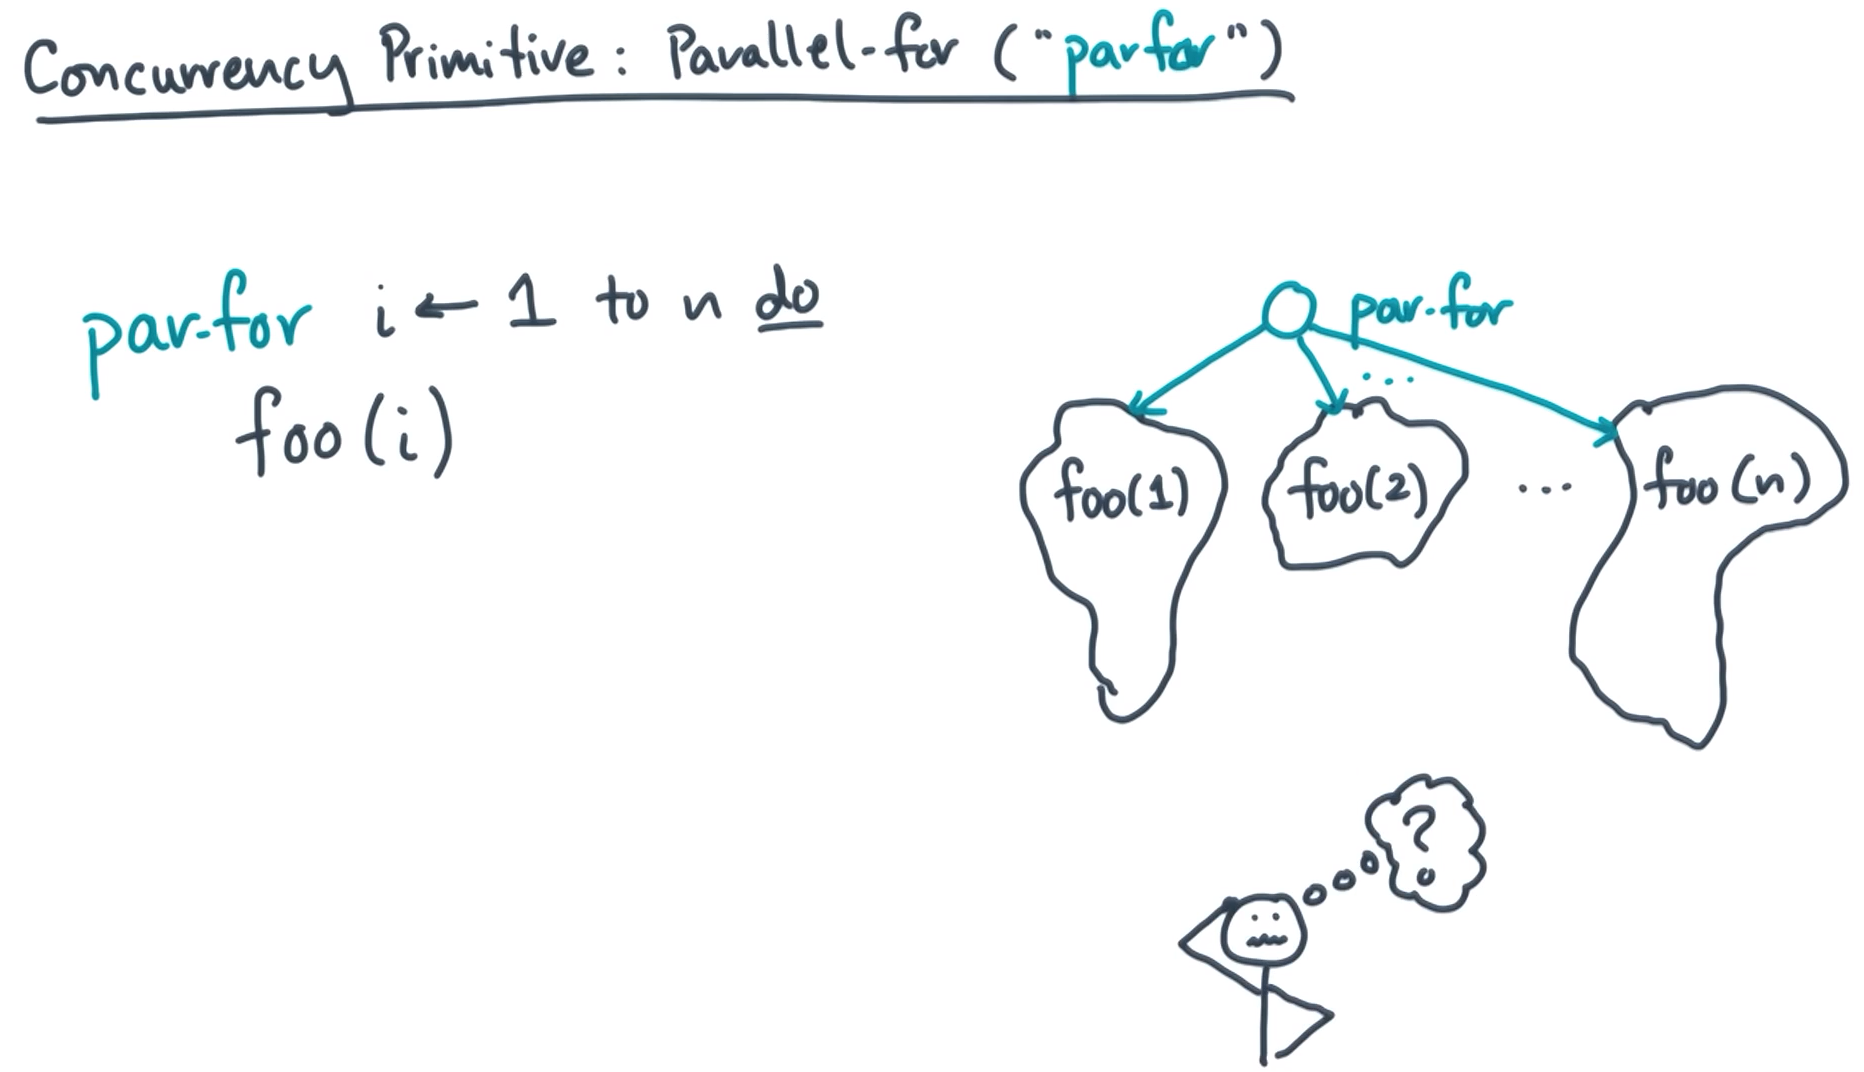 Concurrency Primitive: Parallel-for ("parfor")
par-for i ← 1 to n do
foo(i)
par-for
...
foo(1) foo(2) ... foo(n)
?